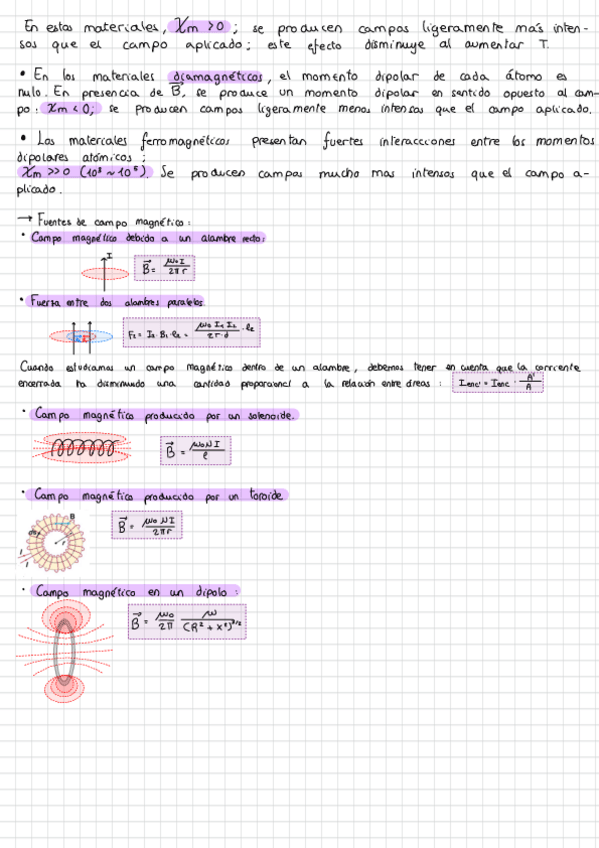 En estos materiales, χm > 0 ; se producen campos ligeramente más inten-
sos que el campo aplicado ; este efecto disminuye al aumentar T.
• En los materiales diamagnéticos, el momento dipolar de cada átomo es
nulo. En presencia de B⃗, se produce un momento dipolar en sentido opuesto al cam-
po : χm < 0; se producen campos ligeramente menos intensos que el campo aplicado.
• Los materiales ferromagnéticos presentan fuertes interacciones entre los momentos
dipolares atómicos ;
χm >> 0 (10³ ~ 10⁵). Se producen campos mucho mas intensos que el campo a-
plicado.
→ Fuentes de campo magnético :
• Campo magnético debido a un alambre recto:
I
B⃗ = μ₀ I / 2π r
• Fuerza entre dos alambres paralelos.
F₂ = I₂ · B₁ · ℓ₂ = μ₀ I₁ I₂ / 2π · d · ℓ₂
Cuando estudiamos un campo magnético dentro de un alambre, debemos tener en cuenta que la corriente
encerrada ha disminuido una cantidad proporcional a la relación entre áreas : Ienc' = Ienc · A' / A
• Campo magnético producido por un solenoide.
B⃗ = μ₀ N I / ℓ
• Campo magnético producido por un toroide
B
r
I
I
B⃗ = μ₀ N I / 2π r
• Campo magnético en un dipolo :
B⃗ = μ₀ / 2π μ / (R² + x²)^3/2